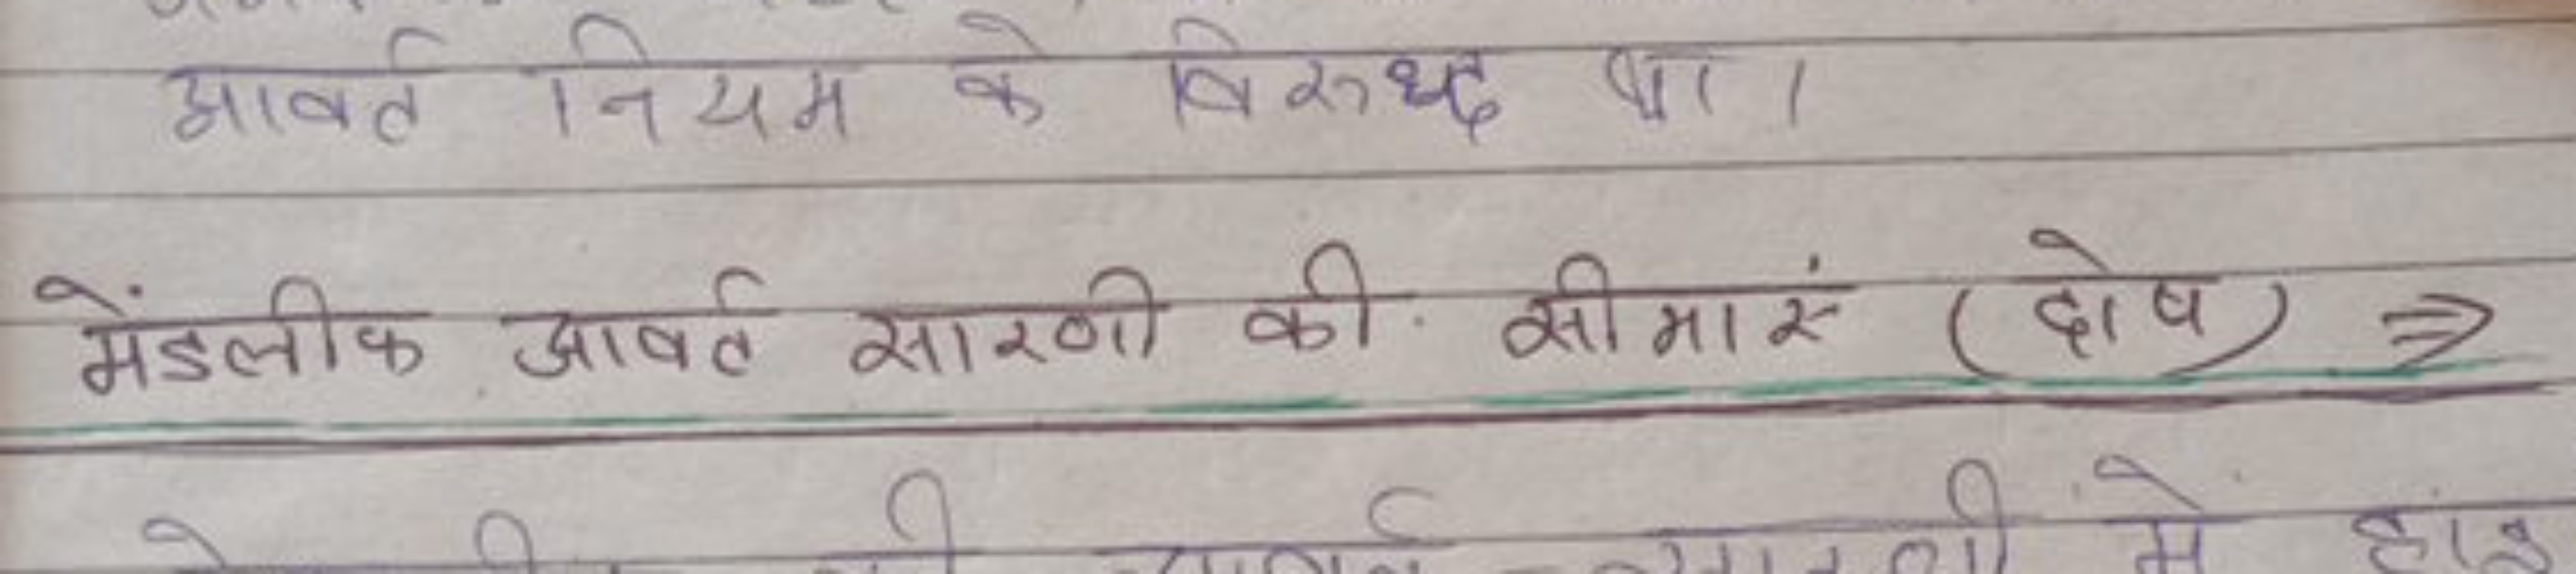 आवर्त नियम के विरुध्द था।
मेंडलीफ आवर्त सारणी की सीमाएं (दोष) ⇒
सारणी में